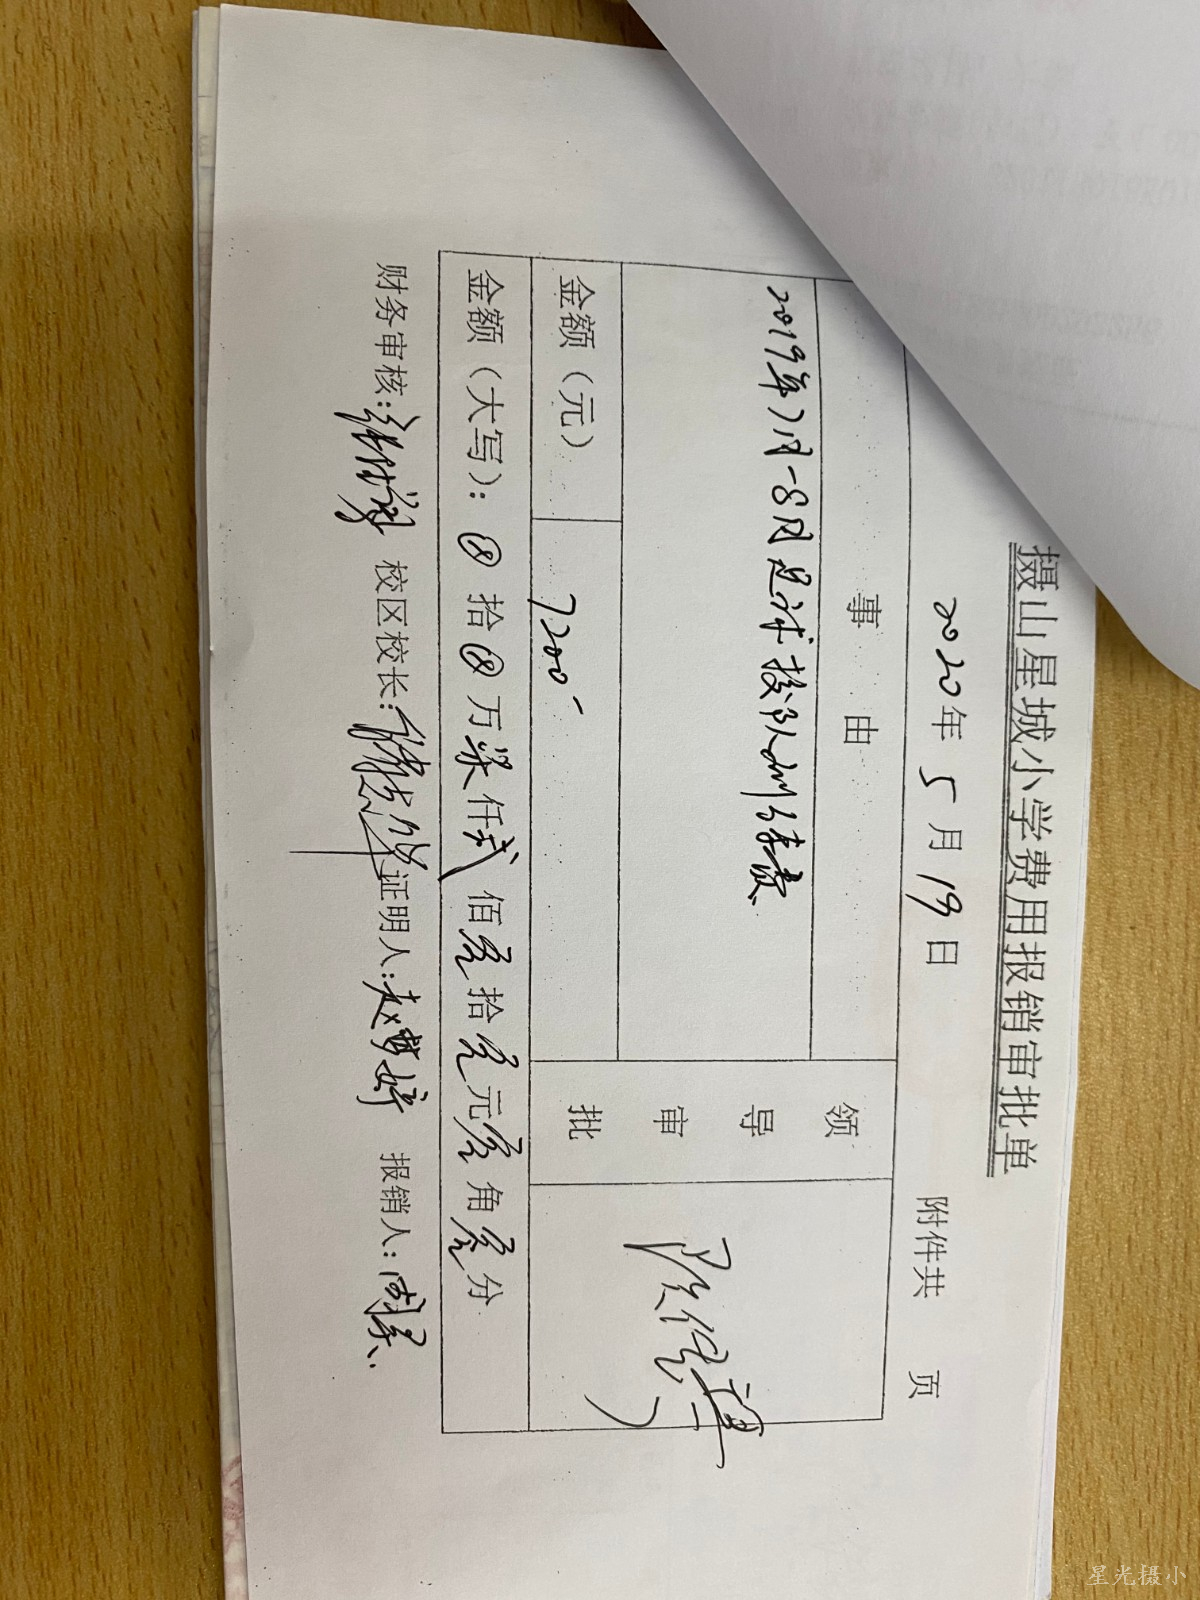 摄山星城小学费用报销审批单
2020年5月19日 附件共 页
事由
领导审批
2019年7月-8月足球 训练费
金额（元） 7200-
金额（大写）：⊗拾⊗万柒仟贰佰零拾零元零角零分
财务审核： 校区校长： 证明人：赵梦婷 报销人：周
星光摄小